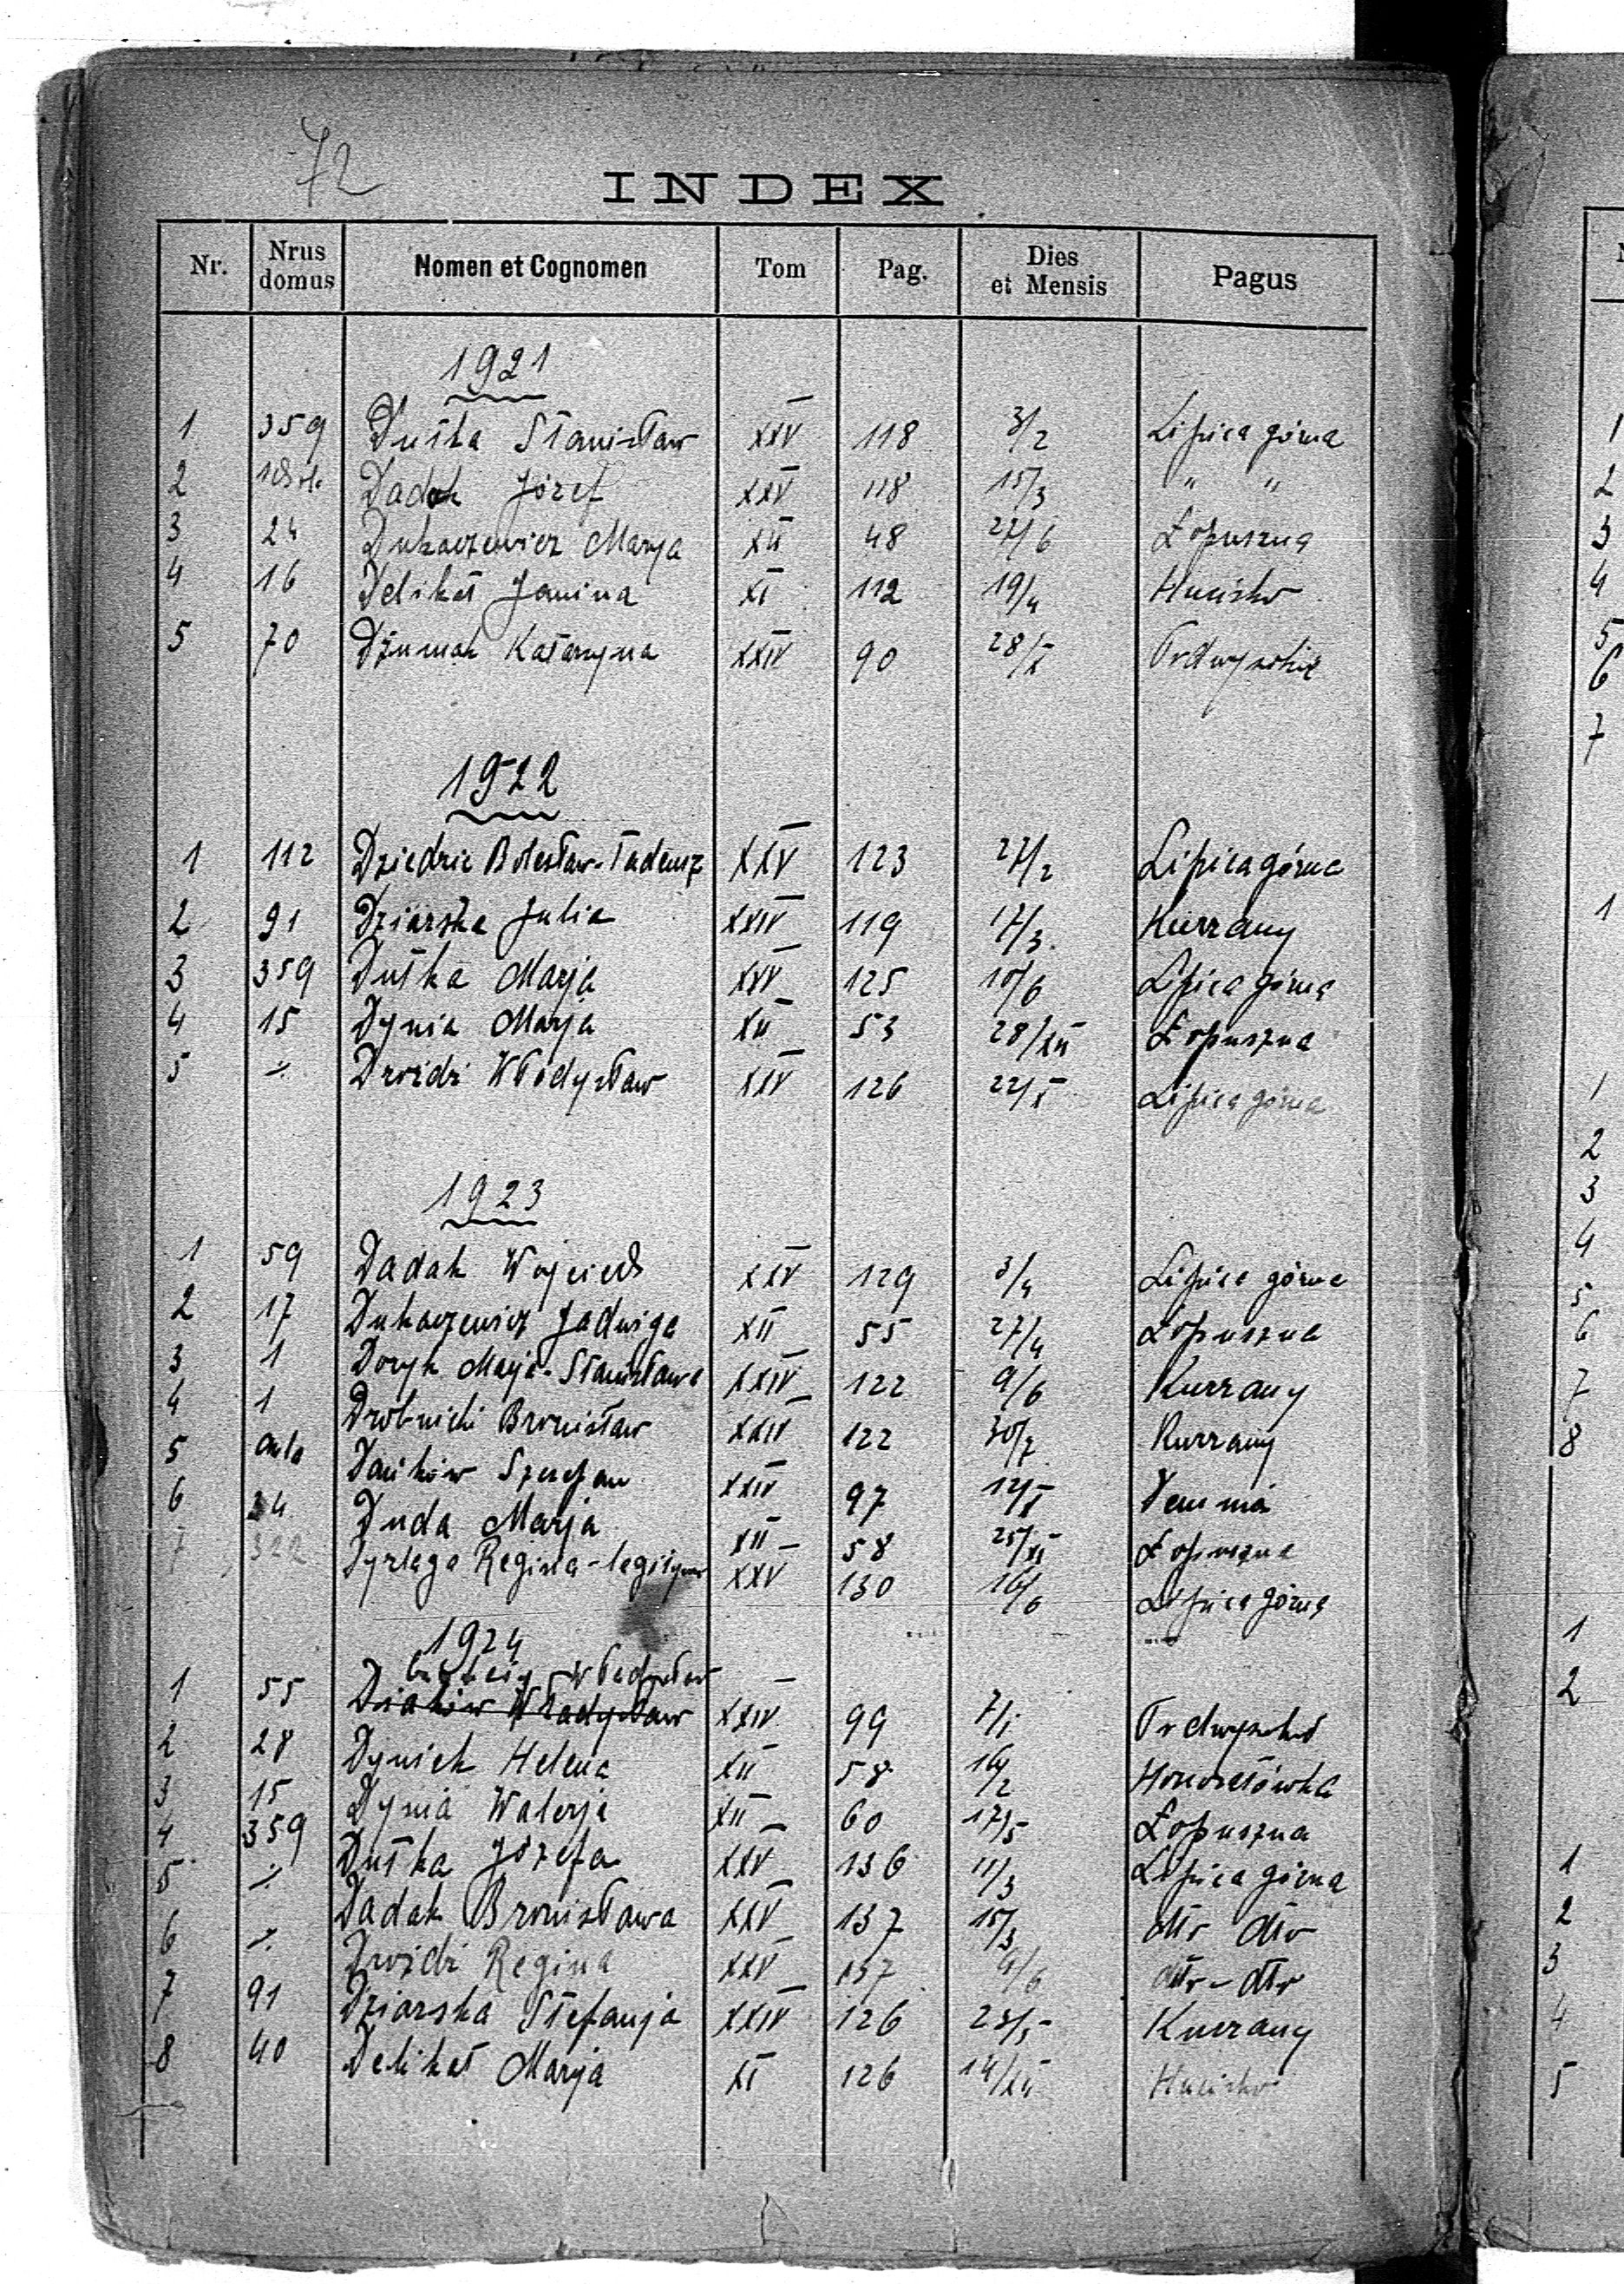 72
INDEX
Nr. Nrus domus Nomen et Cognomen Tom Pag. Dies et Mensis Pagus
1921
1 359 Dutka Stanisław XXV 118 3/2 Lipica górna
2 Dadak Józef XXV 118 15/3 " "
3 24 Dukaczewicz Marya XII 48 27/6 Łopuszna
4 16 Delikat Janina XI 112 19/4 Hucisko
5 70 Dżumak Katarzyna XXIV 90 28/X
1922
1 112 Dziedzic Bolesław-Tadeusz XXV 123 27/2 Lipica górna
2 91 Dziarska Julia XXIV 119 17/3 Kurzany
3 359 Dutka Marja XXV 125 10/6 Lipica górna
4 15 Dynia Marja XII 53 28/XII Łopuszna
5 -/. Drozdz Władysław XXV 126 22/X Lipica górna
1923
1 59 Dadak Wojciech XXV 129 3/4 Lipica górna
2 17 Dukaczewicz Jadwiga XII 55 27/4 Łopuszna
3 1 Doryk Marja-Stanisława XXIV 122 9/6 Kurzany
4 1 Drobnicki Bronisław XXIV 122 30/7 Kurzany
5 Szczepan XXIV 97 12/X Demnia
6 34 Duda Marja XII 58 25/XI Łopuszna
7 322 Regina-legitym XXV 130 16/6 Lipica górna
1924
Władysław
1 55 Dziaków Władysław XXIV 99 7/1
2 28 Dyniek Helena XII 58 16/2 Honoratówka
3 15 Dynia Walerja XII 60 17/5 Łopuszna
4 359 Dutka Józefa XXV 136 11/3 Lipica górna
5 -/. Dadak Bronisława XXV 137 15/3 dto dto
6 -/. Drozdz Regina XXV 137 9/6 dto - dto
7 91 Dziarska Stefanja XXIV 126 Kurzany
8 40 Delikat Marja XI 126 14/XII Hucisko